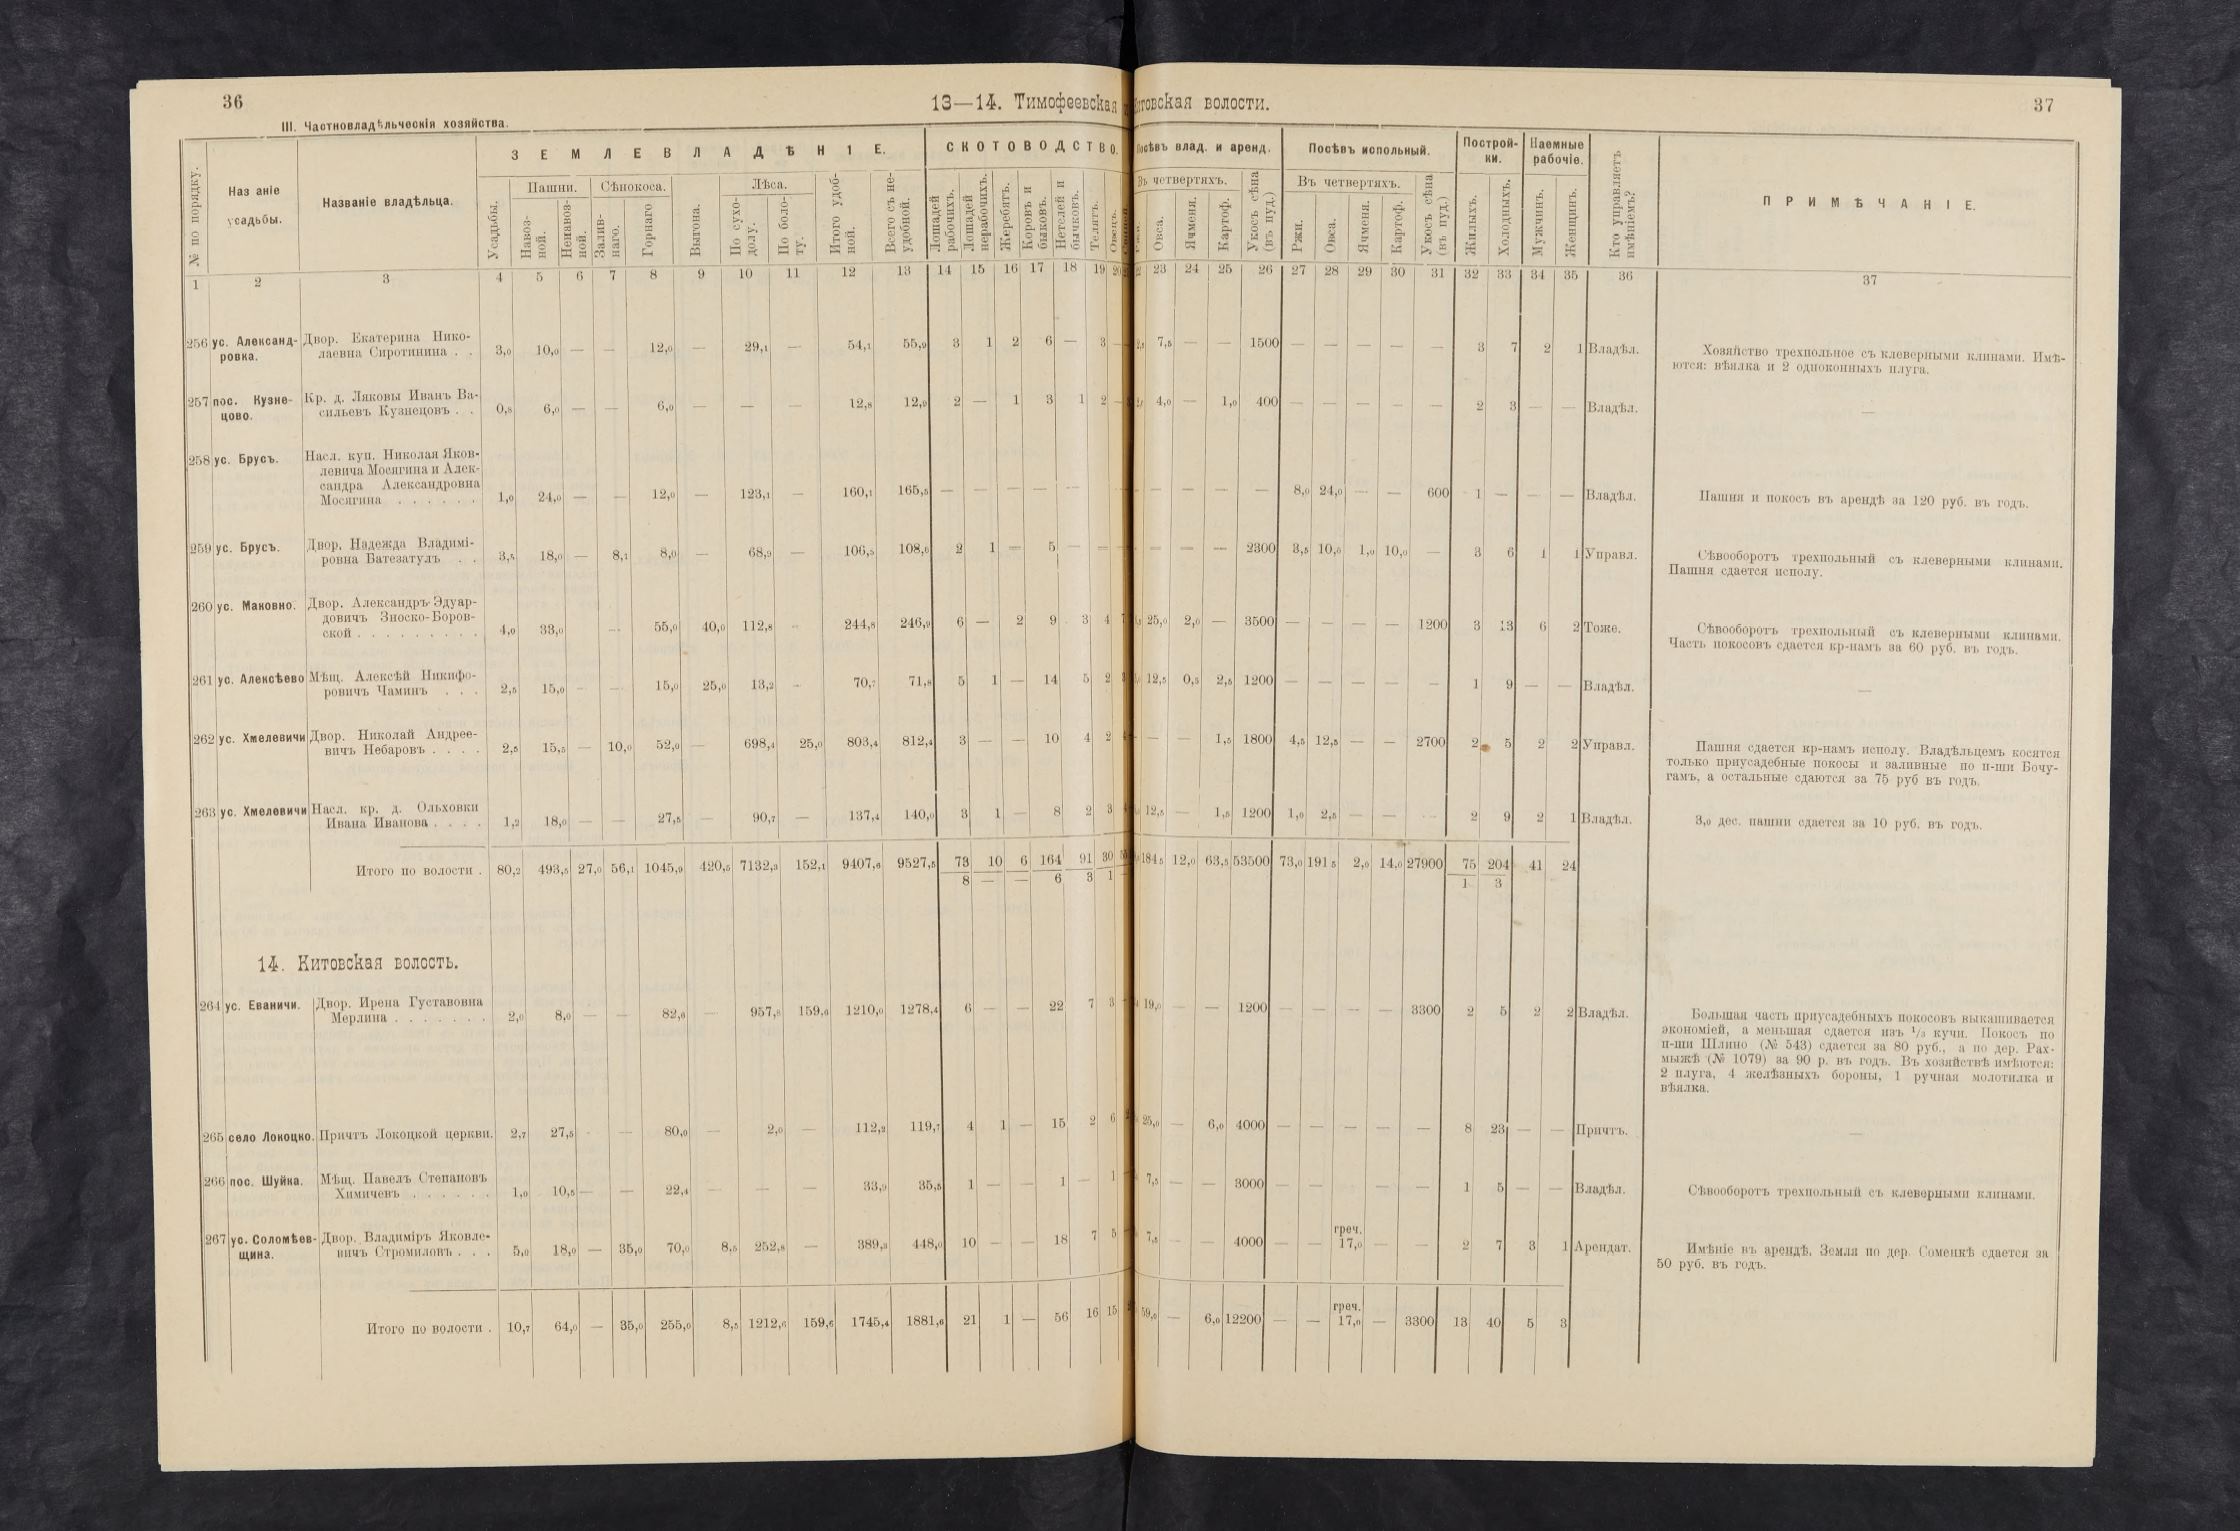 36
13—14. Тимофеевская
итовская волости.
37
III. Частновладѣльческія хозяйства.
№ по порядку.
Наз аніе усадьбы.
Названіе владѣльца.
ЗЕМЛЕВЛАДѢНІЕ.
Усадьбы.
Пашни.
Навоз-ной.
Ненавоз-ной.
Сѣнокоса.
Залив-наго.
Горнаго
Выгона.
Лѣса.
По сухо-долу.
По боло-ту.
Итого удоб-ной.
Всего съ не-удобной.
СКОТОВОДСТВО.
Лошадей рабочихъ.
Лошадей нерабочихъ.
Жеребятъ.
Коровъ и быковъ.
Нетелей и бычковъ.
Телятъ.
Овецъ.
Посѣвъ влад. и аренд.
Въ четвертяхъ.
Ржи.
Овса.
Ячменя.
Картоф.
Укосъ сѣна (въ пуд.)
Посѣвъ испольный.
Въ четвертяхъ.
Ржи.
Овса.
Ячменя.
Картоф.
Укосъ сѣна (въ пуд.)
Построй-ки.
Жилыхъ.
Холодныхъ.
Наемные рабочіе.
Мужчинъ.
Женщинъ.
Кто управляетъ имѣніемъ?
ПРИМѢЧАНІЕ.
1 2 3 4 5 6 7 8 9 10 11 12 13 14 15 16 17 18 19 20 23 24 25 26 27 28 29 30 31 32 33 34 35 36 37
256 ус. Александ-ровка. Двор. Екатерина Нико-
лаевна Сиротинина . . 3,0 10,0 — — 12,0 — 29,1 — 54,1 55,9 3 1 2 6 — 3 — 7,5 — — 1500 — — — — — 3 7 2 1 Владѣл.
Хозяйство трехпольное съ клеверными клинами. Имѣ-
ются: вѣялка и 2 одноконныхъ плуга.
257 пос. Кузне-цово. Кр. д. Ляковы Иванъ Ва-
сильевъ Кузнецовъ . . 0,8 6,0 — — 6,0 — — — 12,8 12,9 2 — 1 3 1 2 — 4,0 — 1,0 400 — — — — — 2 3 — — Владѣл. —
258 ус. Брусъ. Насл. куп. Николая Яков-
левича Мосягина и Алек-
сандра Александровна
Мосягина . . . . . . 1,0 24,0 — — 12,0 — 123,1 — 160,1 165,5 — — — — — — — — — — 8,0 24,0 — — 600 1 — — — Владѣл. Пашня и покосъ въ арендѣ за 120 руб. въ годъ.
259 ус. Брусъ. Двор. Надежда Владимі-
ровна Батезатулъ . . 3,5 18,0 — 8,1 8,0 — 68,9 — 106,5 108,6 2 1 — 5 — — — — — — 2300 3,5 10,0 1,0 10,0 — 3 6 1 1 Управл.
Сѣвооборотъ трехпольный съ клеверными клинами.
Пашня сдается исполу.
260 ус. Маковно. Двор. Александръ Эдуар-
довичъ Зноско-Боров-
ской . . . . . . . . . 4,0 33,0 — 55,0 40,0 112,8 — 244,8 246,9 6 — 2 9 3 4 25,0 2,0 — 3500 — — — — 1200 3 13 6 2 Тоже.
Сѣвооборотъ трехпольный съ клеверными клинами.
Часть покосовъ сдается кр-намъ за 60 руб. въ годъ.
261 ус. Алексѣево Мѣщ. Алексѣй Никифо-
ровичъ Чаминъ . . . 2,5 15,0 — — 15,0 25,0 13,2 — 70,7 71,8 5 1 — 14 5 2 12,5 0,5 2,5 1200 — — — — — 1 9 — — Владѣл. —
262 ус. Хмелевичи Двор. Николай Андрее-
вичъ Небаровъ . . . . 2,5 15,5 — 10,0 52,0 — 698,4 25,0 803,4 812,4 3 — — 10 4 2 — — 1,5 1800 4,5 12,5 — — 2700 2 5 2 2 Управл.
Пашня сдается кр-намъ исполу. Владѣльцемъ косятся
только приусадебные покосы и заливные по п-ши Бочу-
гамъ, а остальные сдаются за 75 руб въ годъ.
263 ус. Хмелевичи Насл. кр. д. Ольховки
Ивана Иванова . . . . 1,2 18,0 — — 27,5 — 90,7 — 137,4 140,0 3 1 — 8 2 3 12,5 — 1,5 1200 1,0 2,5 — — — 2 9 2 1 Владѣл. 3,0 дес. пашни сдается за 10 руб. въ годъ.
Итого по волости . 80,2 493,5 27,0 56,1 1045,9 420,5 7132,3 152,1 9407,6 9527,5 73 10 6 164 91 30 184,5 12,0 63,5 53500 73,0 191,5 2,0 14,0 27900 75 204 41 24
8 — — 6 3 1 1 3
14. Китовская волость.
264 ус. Еваничи. Двор. Ирена Густавовна
Мерлина . . . . . . . 2,0 8,0 — — 82,6 — 957,8 159,6 1210,0 1278,4 6 — — 22 7 3 19,0 — — 1200 — — — — 3300 2 5 2 2 Владѣл.
Большая часть приусадебныхъ покосовъ выкашивается
экономіей, а меньшая сдается изъ 1/3 кучи. Покосъ по
п-ши Шлино (№ 543) сдается за 80 руб., а по дер. Рах-
мыжѣ (№ 1079) за 90 р. въ годъ. Въ хозяйствѣ имѣются:
2 плуга, 4 желѣзныхъ бороны, 1 ручная молотилка и
вѣялка.
265 село Локоцко. Причтъ Локоцкой церкви. 2,7 27,5 — — 80,0 — 2,0 — 112,2 119,7 4 1 — 15 2 6 25,0 — 6,0 4000 — — — — — 8 23 — — Причтъ. —
266 пос. Шуйка. Мѣщ. Павелъ Степановъ
Химичевъ . . . . . . 1,0 10,5 — — 22,4 — — — 33,9 35,5 1 — — 1 — 1 7,5 — — 3000 — — — — — 1 5 — — Владѣл. Сѣвооборотъ трехпольный съ клеверными клинами.
267 ус. Соломѣев-щина. Двор. Владиміръ Яковле-
вичъ Стромиловъ . . . 5,0 18,0 — 35,0 70,0 8,5 252,8 — 389,3 448,0 10 — — 18 7 5 7,5 — — 4000 — — греч. 17,0 — — 2 7 3 1 Арендат.
Имѣніе въ арендѣ. Земля по дер. Соменкѣ сдается за
50 руб. въ годъ.
Итого по волости . 10,7 64,0 — 35,0 255,0 8,5 1212,6 159,6 1745,4 1881,6 21 1 — 56 16 15 59,0 — 6,0 12200 — — греч. 17,0 — 3300 13 40 5 3